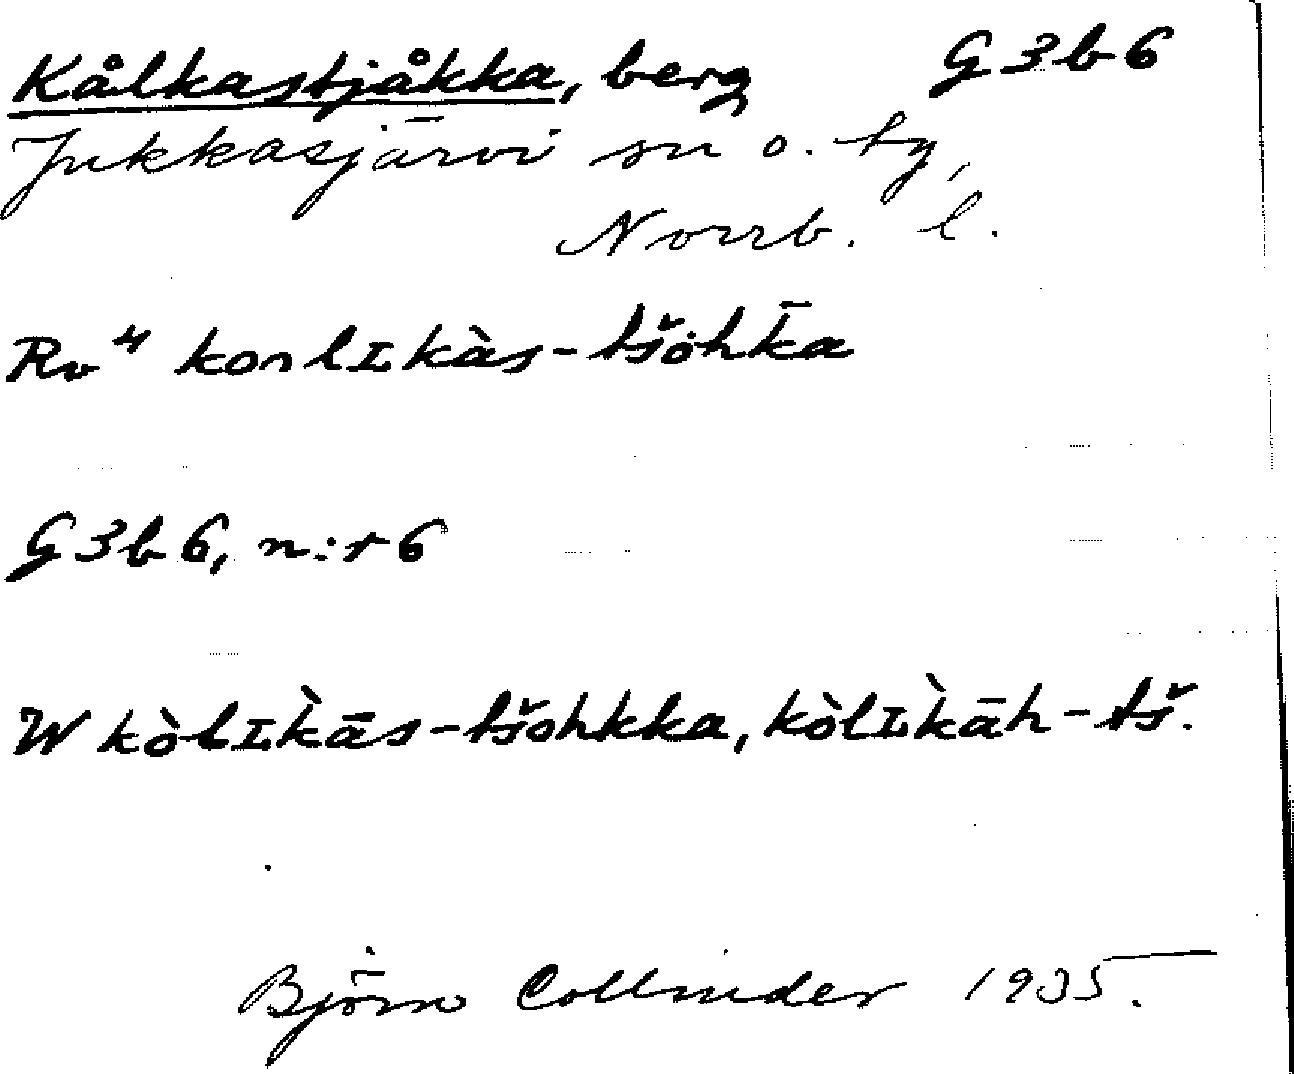 Kålkastjåkka, berg G3b6
Jukkasjärvi sn o. tg,
Norrb. l.
Rv⁴ konlɪkàs-tšȯhk̄a
G3b6, n:r 6
W kòlɪk̀ās-tšohkka, kòlɪk̀āh-tš.
Björn Collinder 1935.